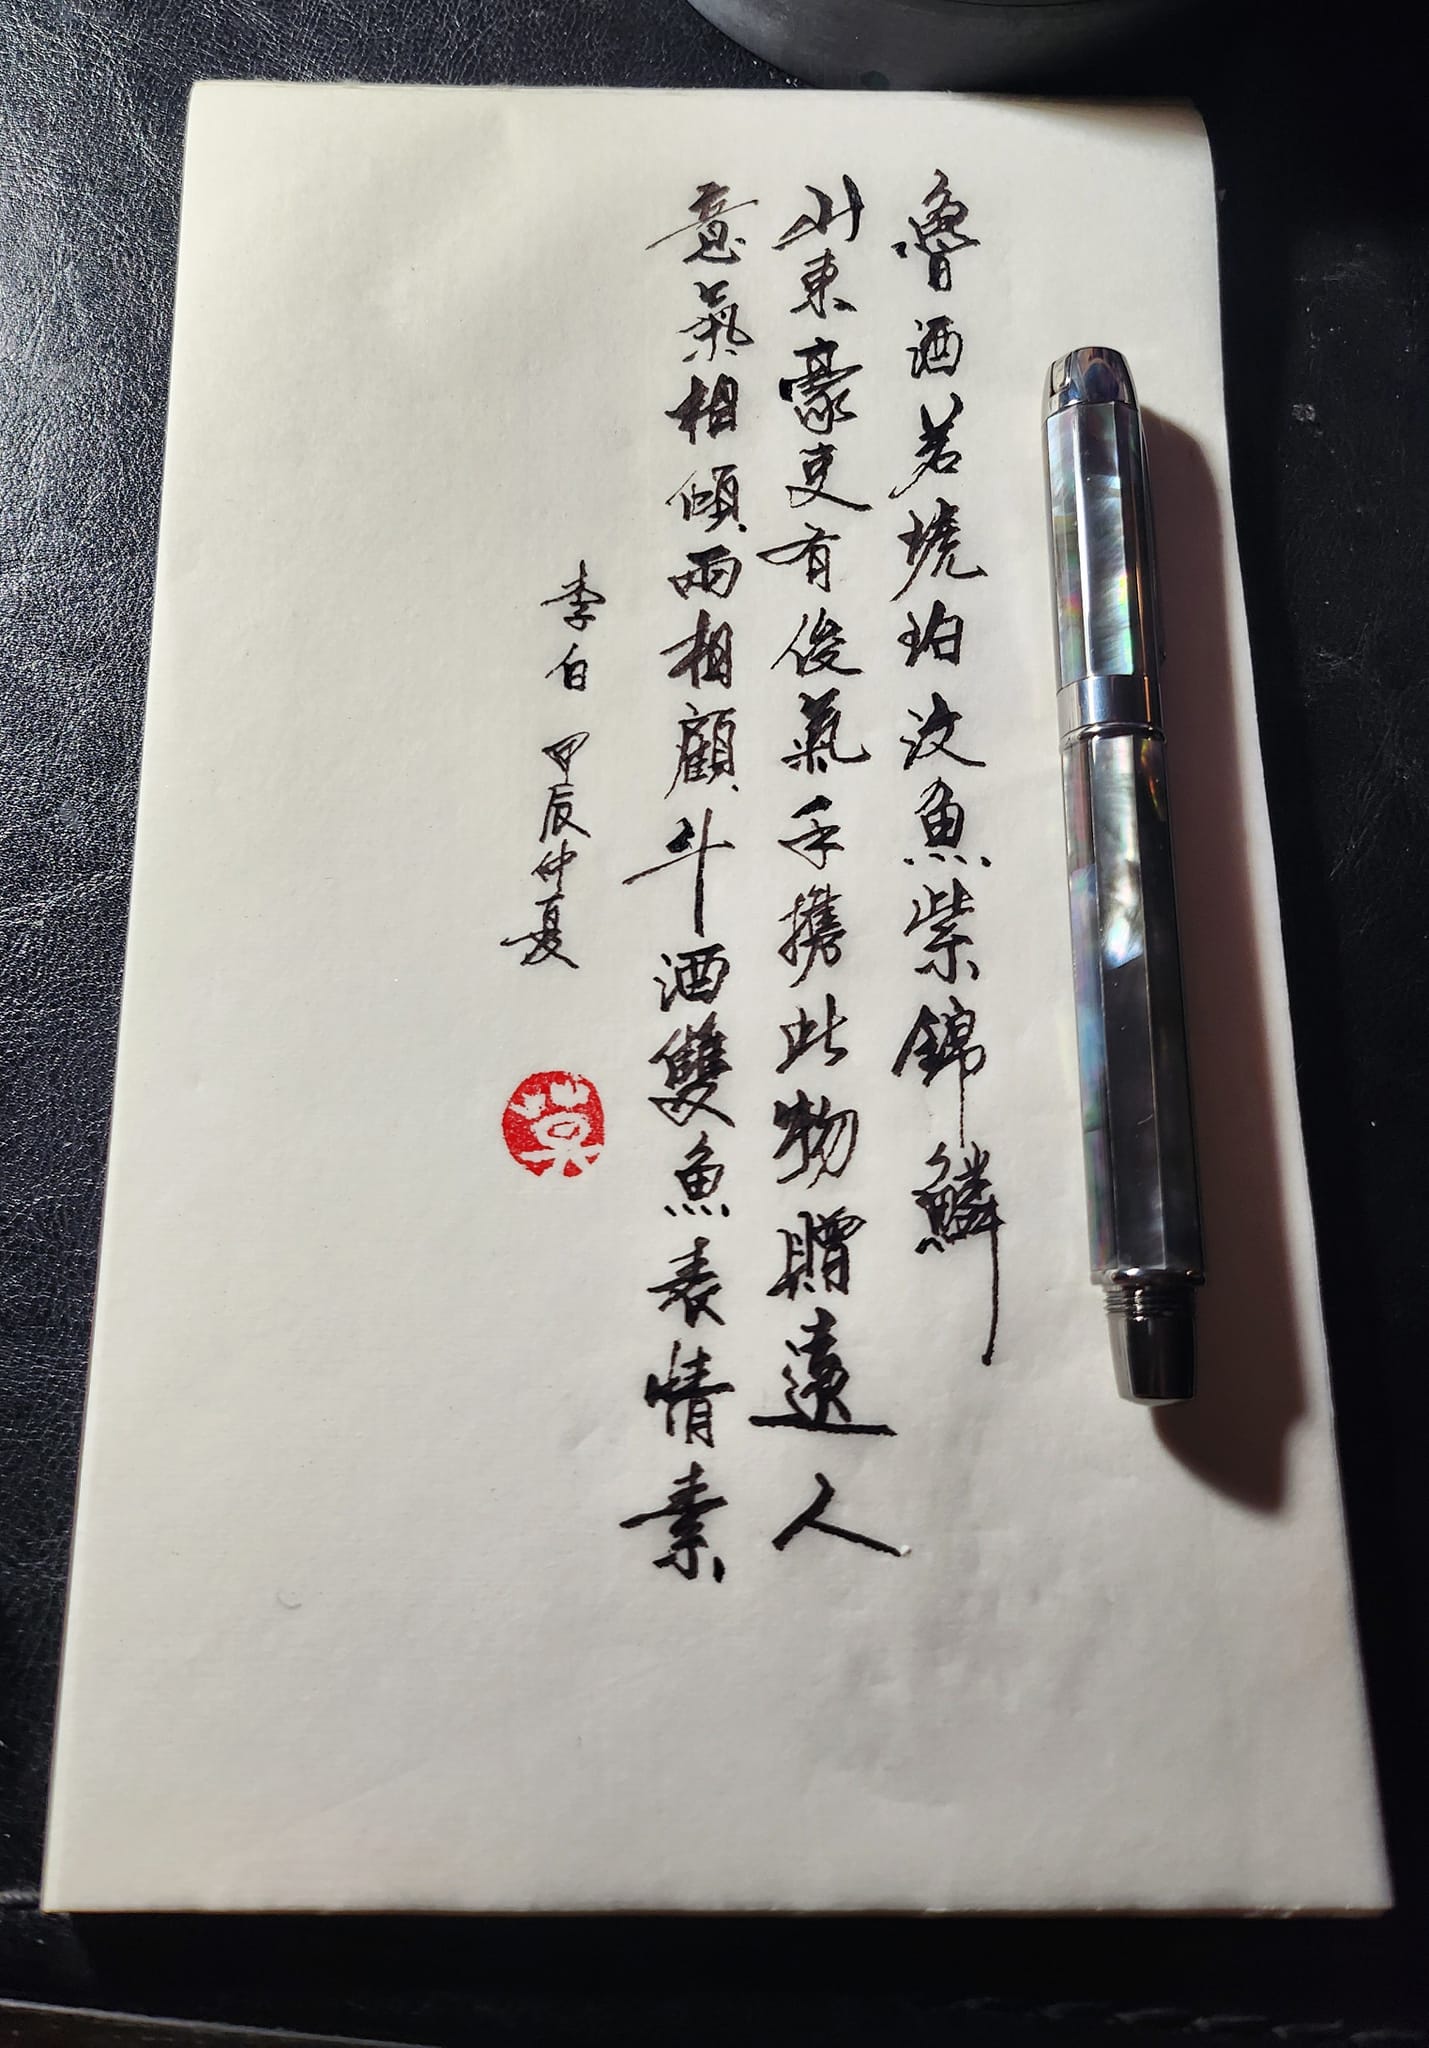 魯酒若琥珀汶魚紫錦鱗
山東豪吏有俊氣手攜此物贈遠人
意氣相傾兩相顧斗酒雙魚表情素
李白 甲辰仲夏